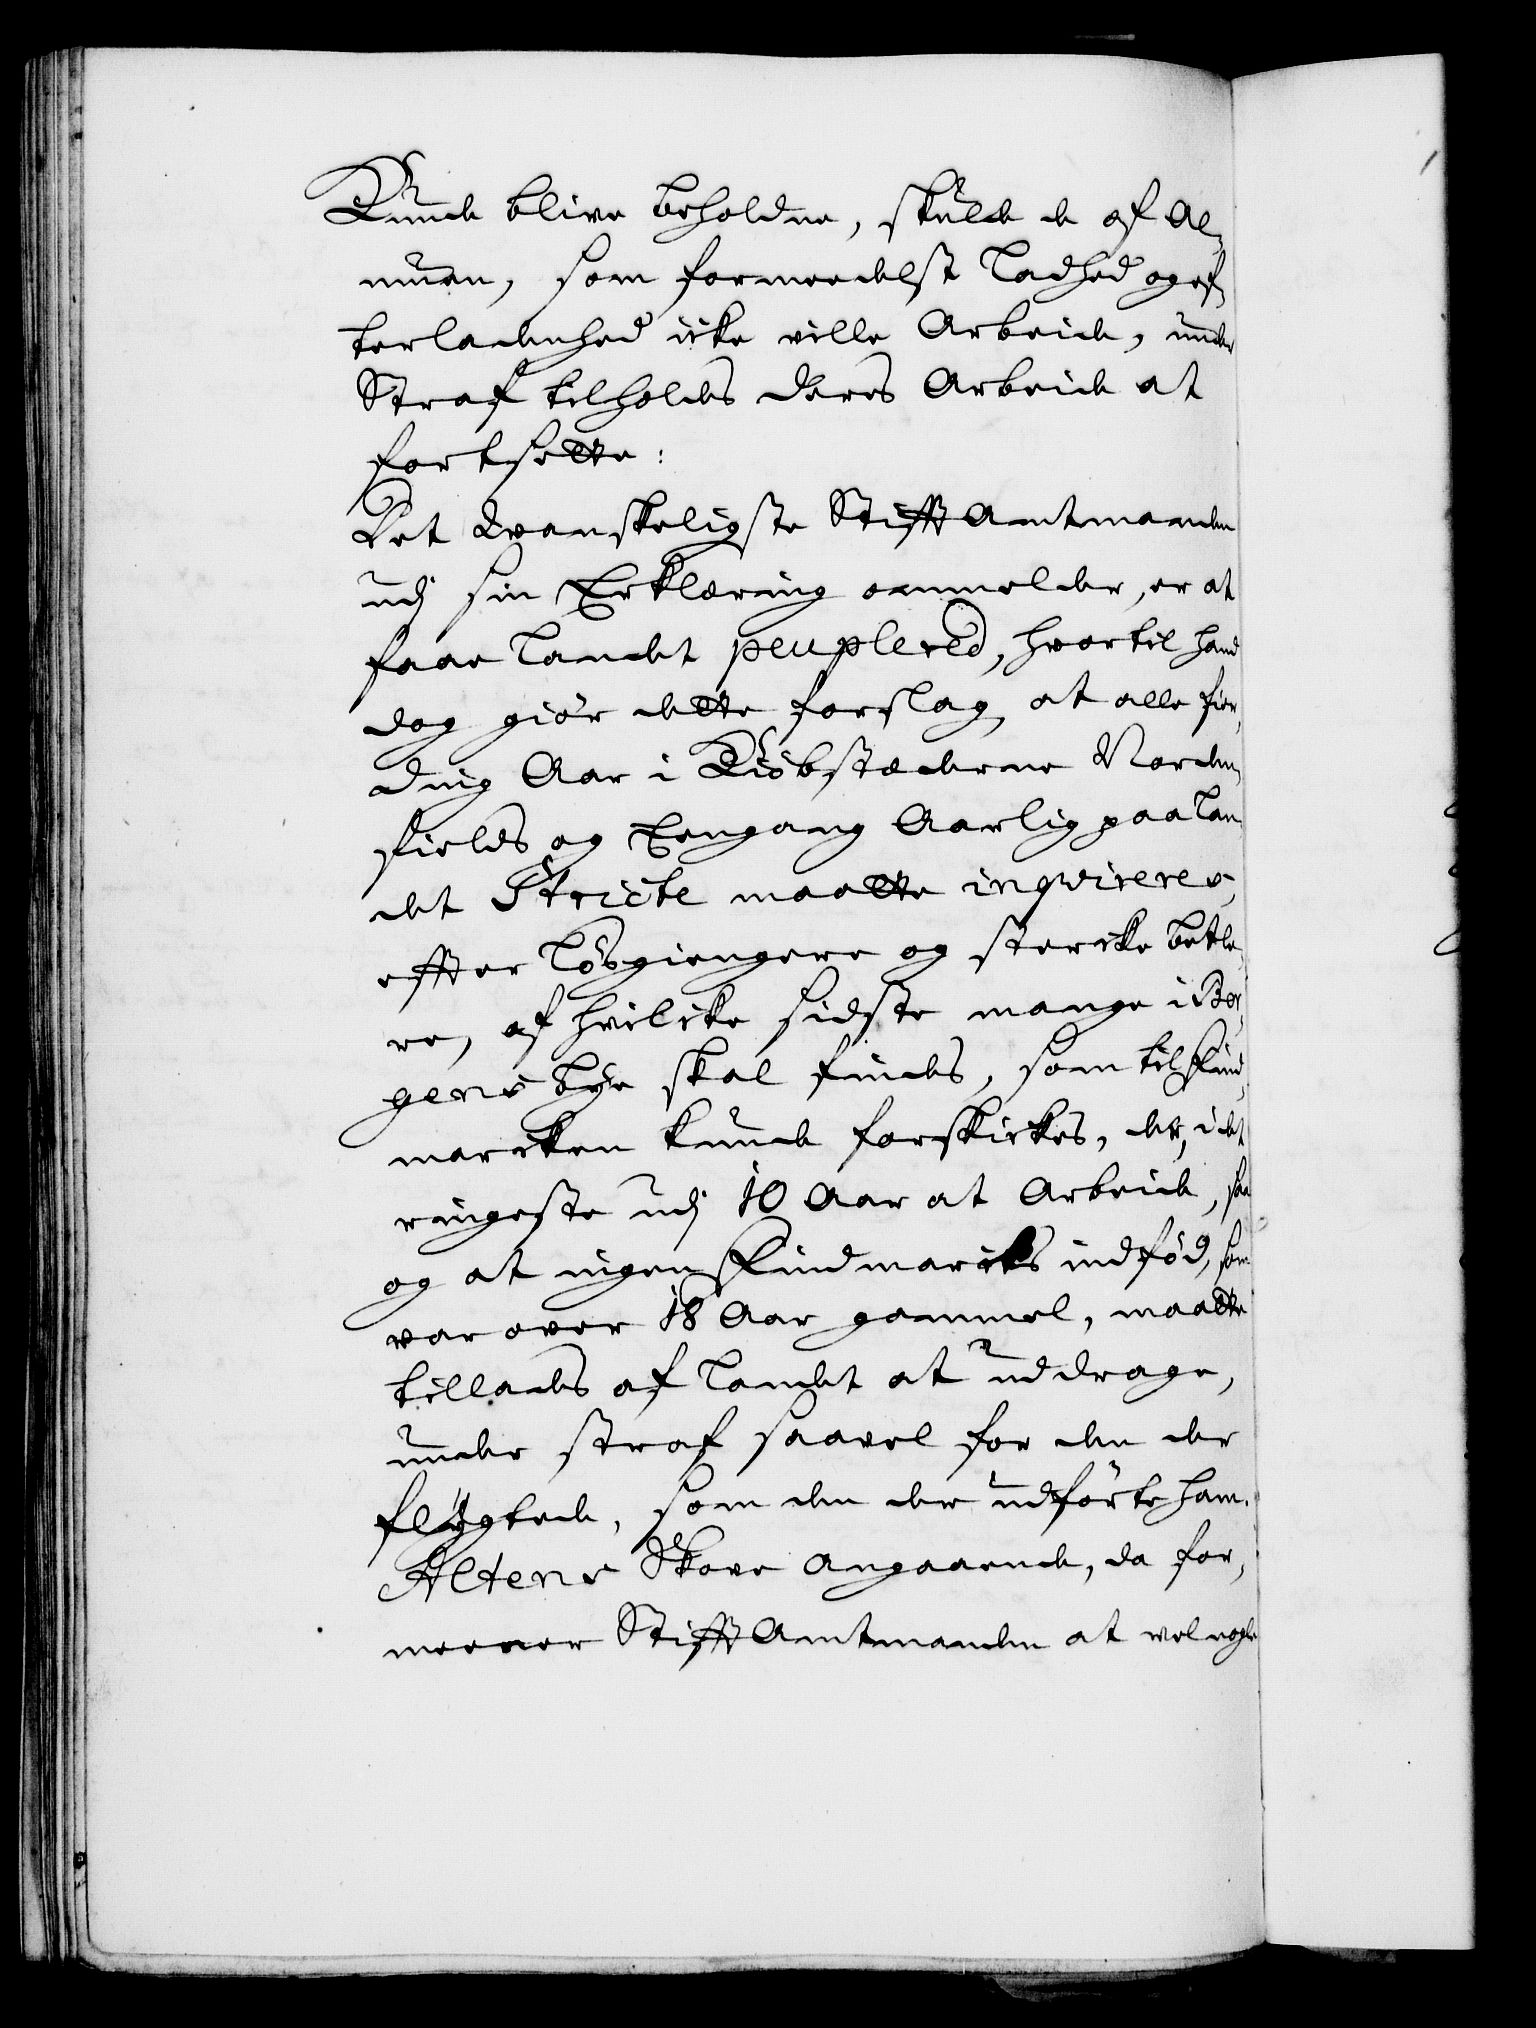 Kunde blive beholdne, skulde de af Al-
muen, som formeedelst Ladhed og ef-
terladenhed icke ville Arbeide, under
Straf tilholdes deres Arbeide at
fortsette:
Det Vanskeligste Stifft Amtmanden
udj sin Erklæring anmelder, er at
faae Landet peuplered, hvortil hand
dog giör dette forslag, at alle fier-
ding Aar i Kiöbstæderne Norden-
fields og Eengang Aarlig paa Lan-
det Stricte maatte inqvireres,
effter Lösgiengere og stercke betle-
re, af hvilcke sidste mange i Ber-
gens bÿe skal findes, som til Find-
marcken kunde forskickes, der, i det
ringeste udj 10 Aar at Arbeide, saa
og at ingen Findmarcks indfød, som
var over 18 Aar gammel, maatte
tillades af Landet at uddrage,
under straf saavel for den der
flÿgtede, som den der udförte ham.
Altens Skove Angaaende, da for-
meener Stifft Amtmanden at vel nogle